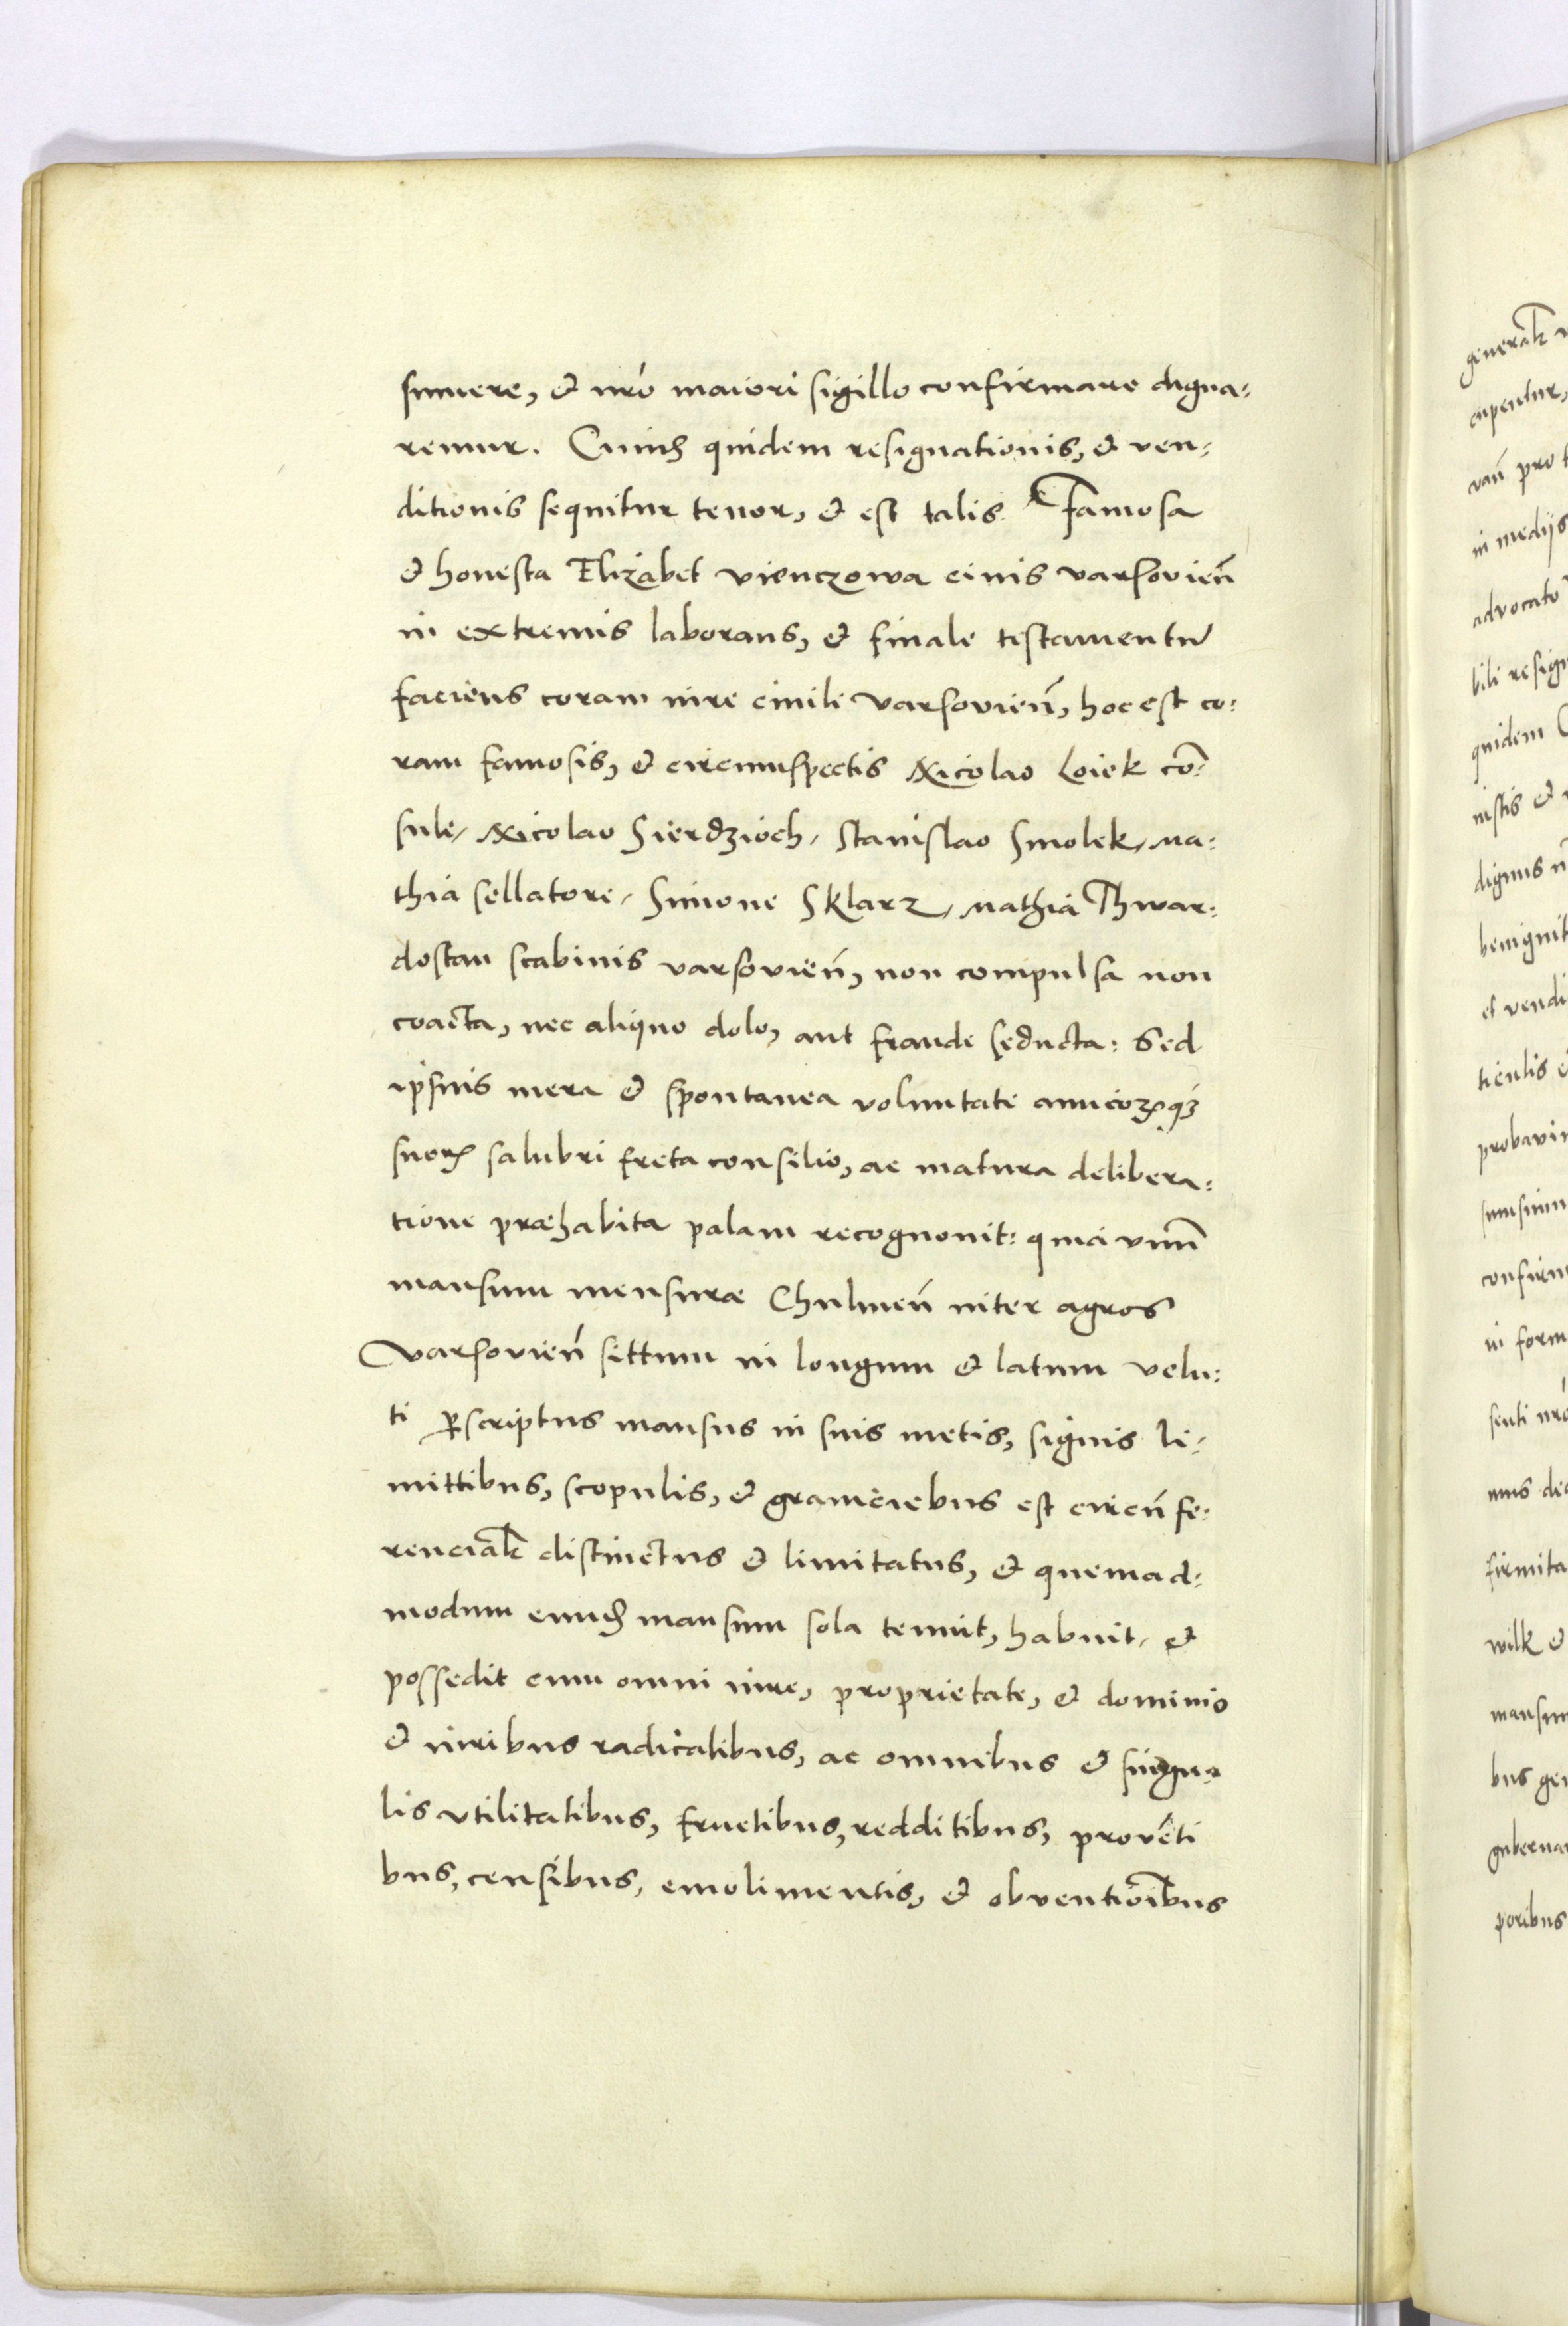 sumere, & nŕo maiori sigillo confirmare digna:
remur. Cuiuꝰ quidem resignationis, & ven:
ditionis sequitur tenor, & est talis. Famosa
& honesta Elizabet vienczowa ciuis varsovien̄
in extremis laborans, & finale testamentū
faciens coram iure ciuili varsovien̄, hoc est co:
ram famosis, & circumspectis Nicolao Loiek cō:
sule, Nicolao Sierdzioch, Stanislao Smolek, Ma:
thia sellatore, Simone Sklarz, Mathia Thwar:
dostan scabinis varsovien̄, non compulsa non
coacta, nec aliquo dolo, aut fraude seducta: Sed
ipsius mera & spontanea voluntate amicoꝝqꝫ
suoꝝ salubri freta consilio, ac matura delibera:
tione præhabita palam recognouit: quia vnū
mansum mensuræ Chulmen̄ inter agros
Varsovien̄ sittum in longum & latum velu:
ti p̄scriptus mansus in suis metis, signis li:
mittibus, scopulis, & graniciebus est circū fe:
rencialr̄ distinctus & limitatus, & quemad:
modum eundꝫ mansum sola tenuit, habuit, &
possedit cum omni iure, proprietate, & dominio
& iuribus radicalibus, ac omnibus & singu:
lis vtilitatibus, fructibus, redditibus, provēti
bus, censibus, emolimentis, & obventioībus
generalr̄
cupentur,
van̄ pro
in medijs
advocato
bili resig
quidem
iustis &
dignus
benignit
et vendi
ticulis
probavi
confirm
in form
senti nŕo
mus de
firmita
wilk &
mansum
bus ge
guberna
poribus